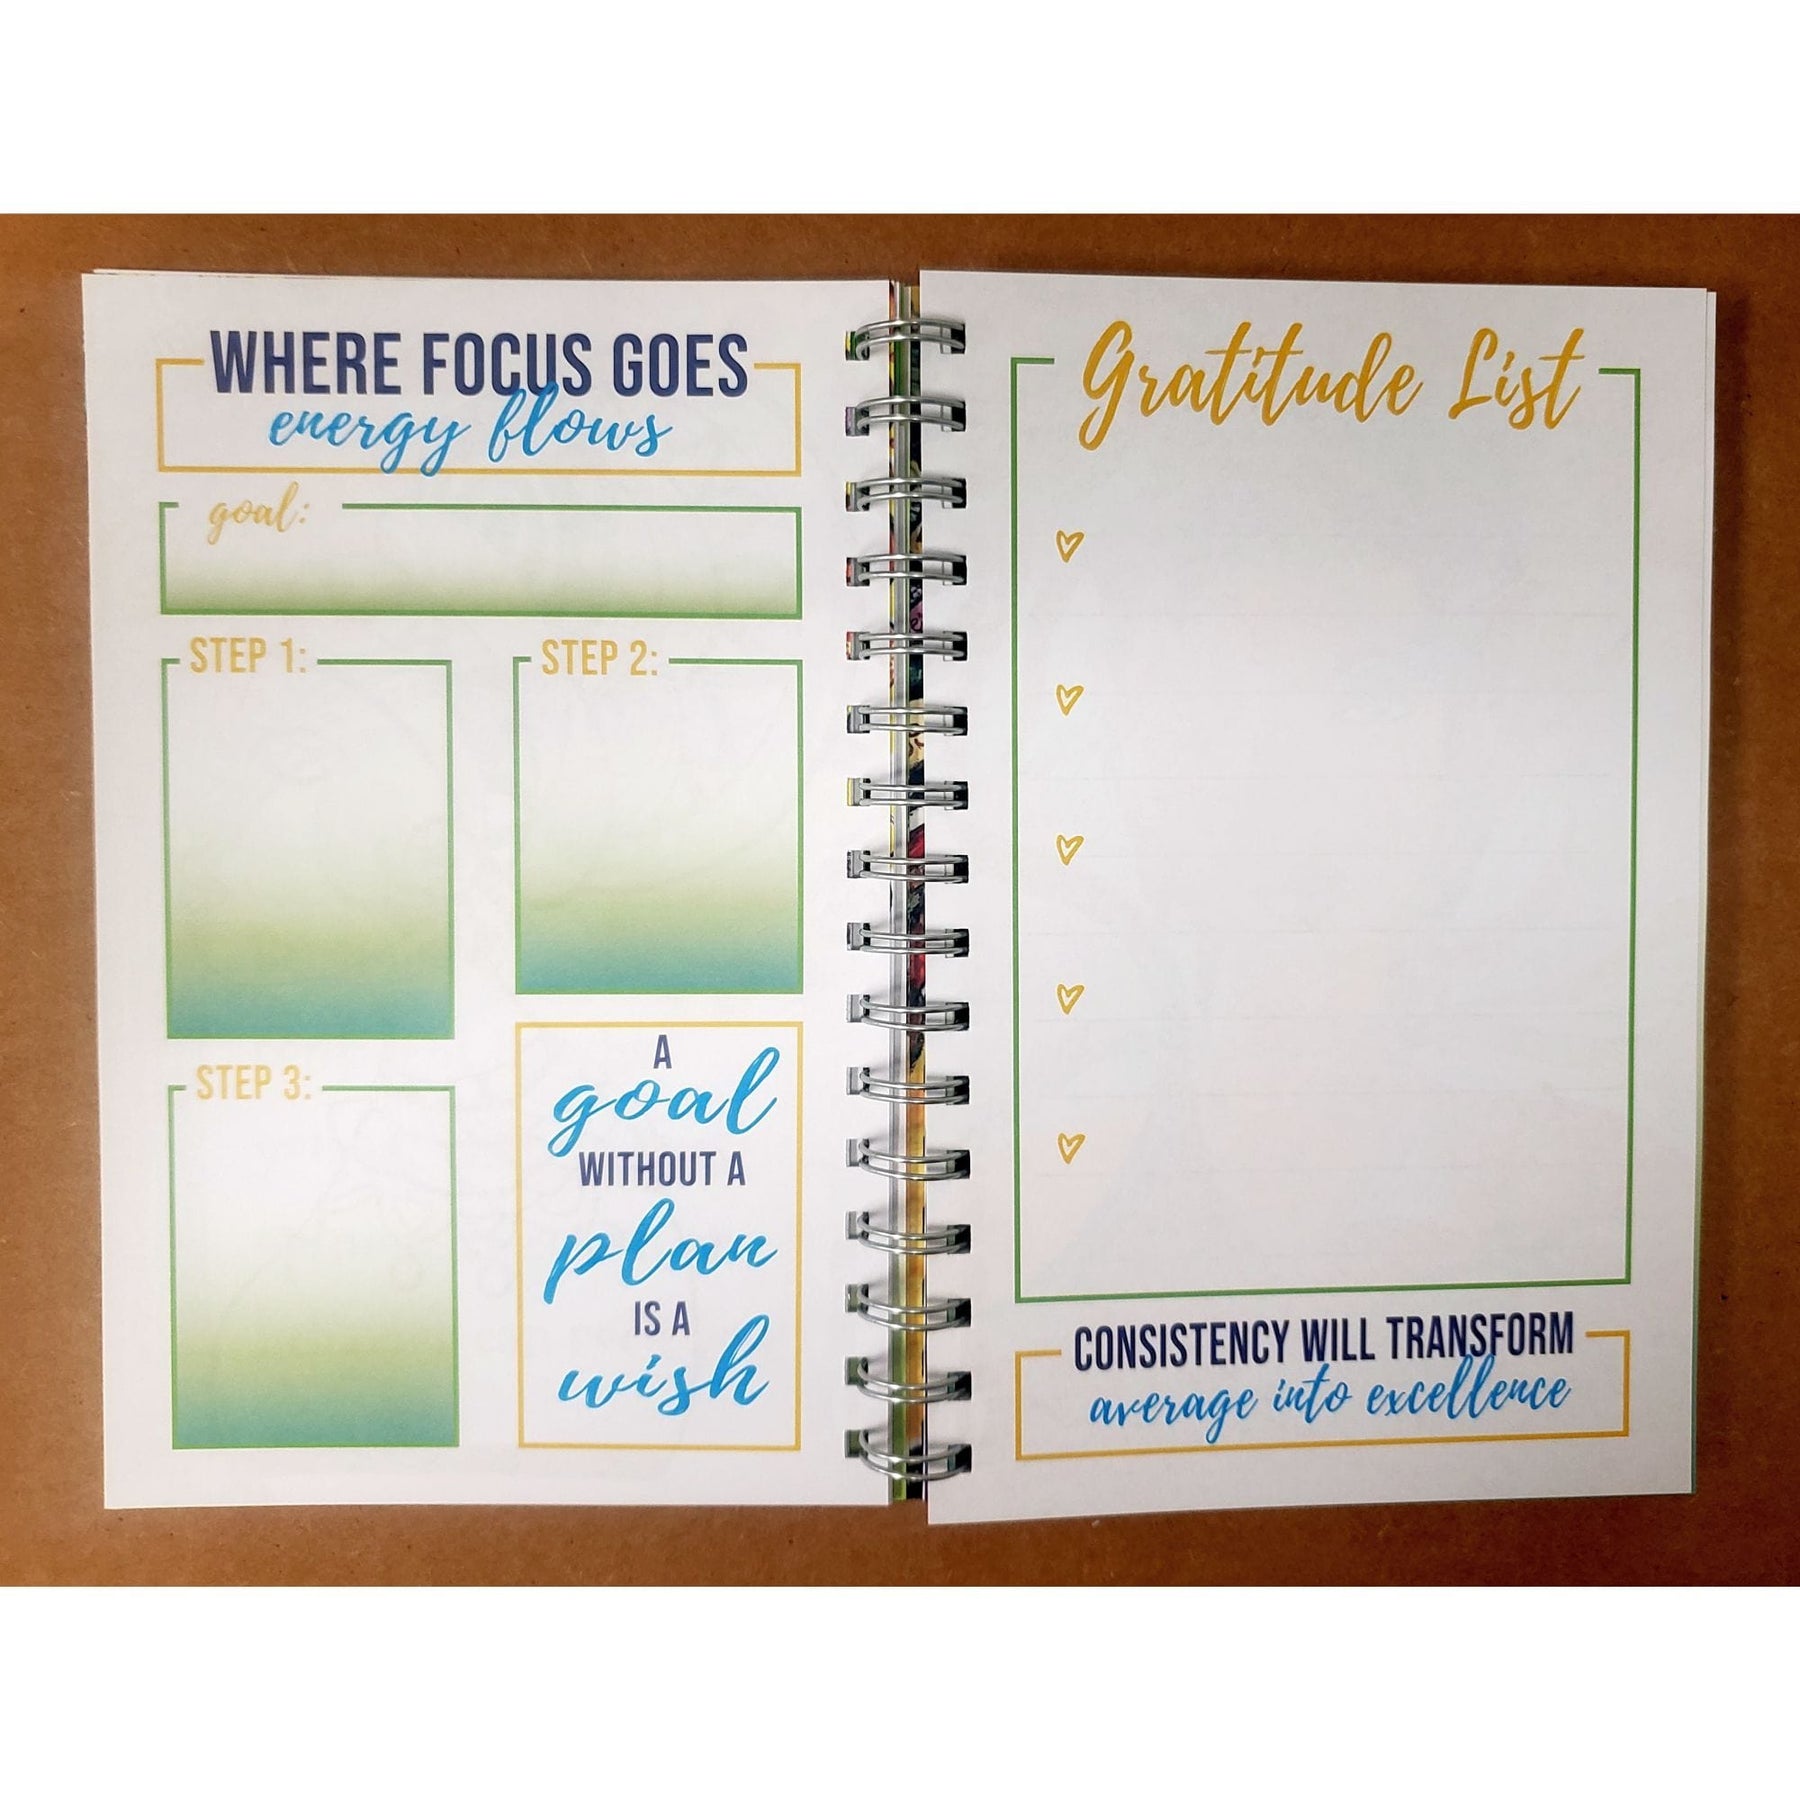 WHERE FOCUS GOES
energy flows
goal:
STEP 1:
STEP 2:
STEP 3:
A
goal
WITHOUT A
plan
IS A
wish
Gratitude List
CONSISTENCY WILL TRANSFORM
average into excellence